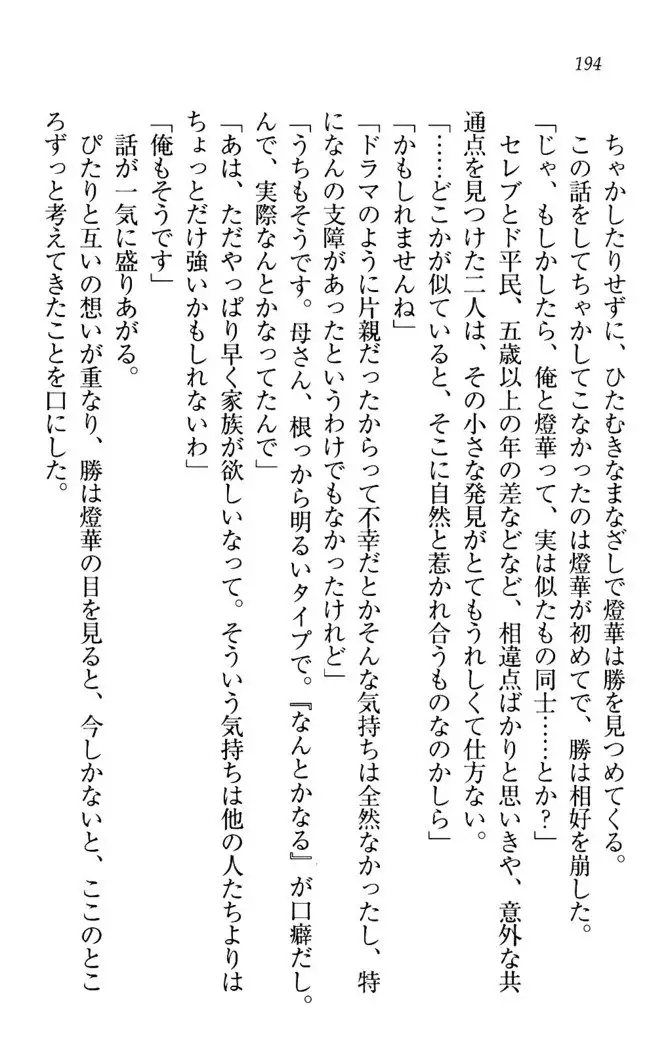 194
ちゃかしたりせずに、ひたむきなまなざしで燈華は勝を見つめてくる。
この話をしてちゃかしてこなかったのは燈華が初めてで、勝は相好を崩した。
「じゃ、もしかしたら、俺と燈華って、実は似たもの同士……とか？」
セレブとド平民、五歳以上の年の差などなど、相違点ばかりと思いきや、意外な共
通点を見つけた二人は、その小さな発見がとてもうれしくて仕方ない。
「……どこかが似ていると、そこに自然と惹かれ合うものなのかしら」
「かもしれませんね」
「ドラマのように片親だったからって不幸だとかそんな気持ちは全然なかったし、特
になんの支障があったというわけでもなかったけれど」
「うちもそうです。母さん、根っから明るいタイプで。『なんとかなる』が口癖だし。
んで、実際なんとかなってたんで」
「あは、ただやっぱり早く家族が欲しいなって。そういう気持ちは他の人たちよりは
ちょっとだけ強いかもしれないわ」
「俺もそうです」
話が一気に盛りあがる。
ぴたりと互いの想いが重なり、勝は燈華の目を見ると、今しかないと、ここのとこ
ろずっと考えてきたことを口にした。